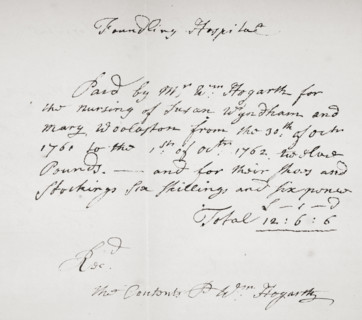 Foundling Hospital
Paid by Mr Wm Hogarth for
the nursing of Susan Wyndham and
Mary Woolaston from the 30th of octr
1761 to the 1st of octr 1762 twelve
Pounds. — and for their shoes and
Stockings Six Shillings and six pence
L—s—d
Total 12:6:6
Recd
the Contents P Wm Hogarth